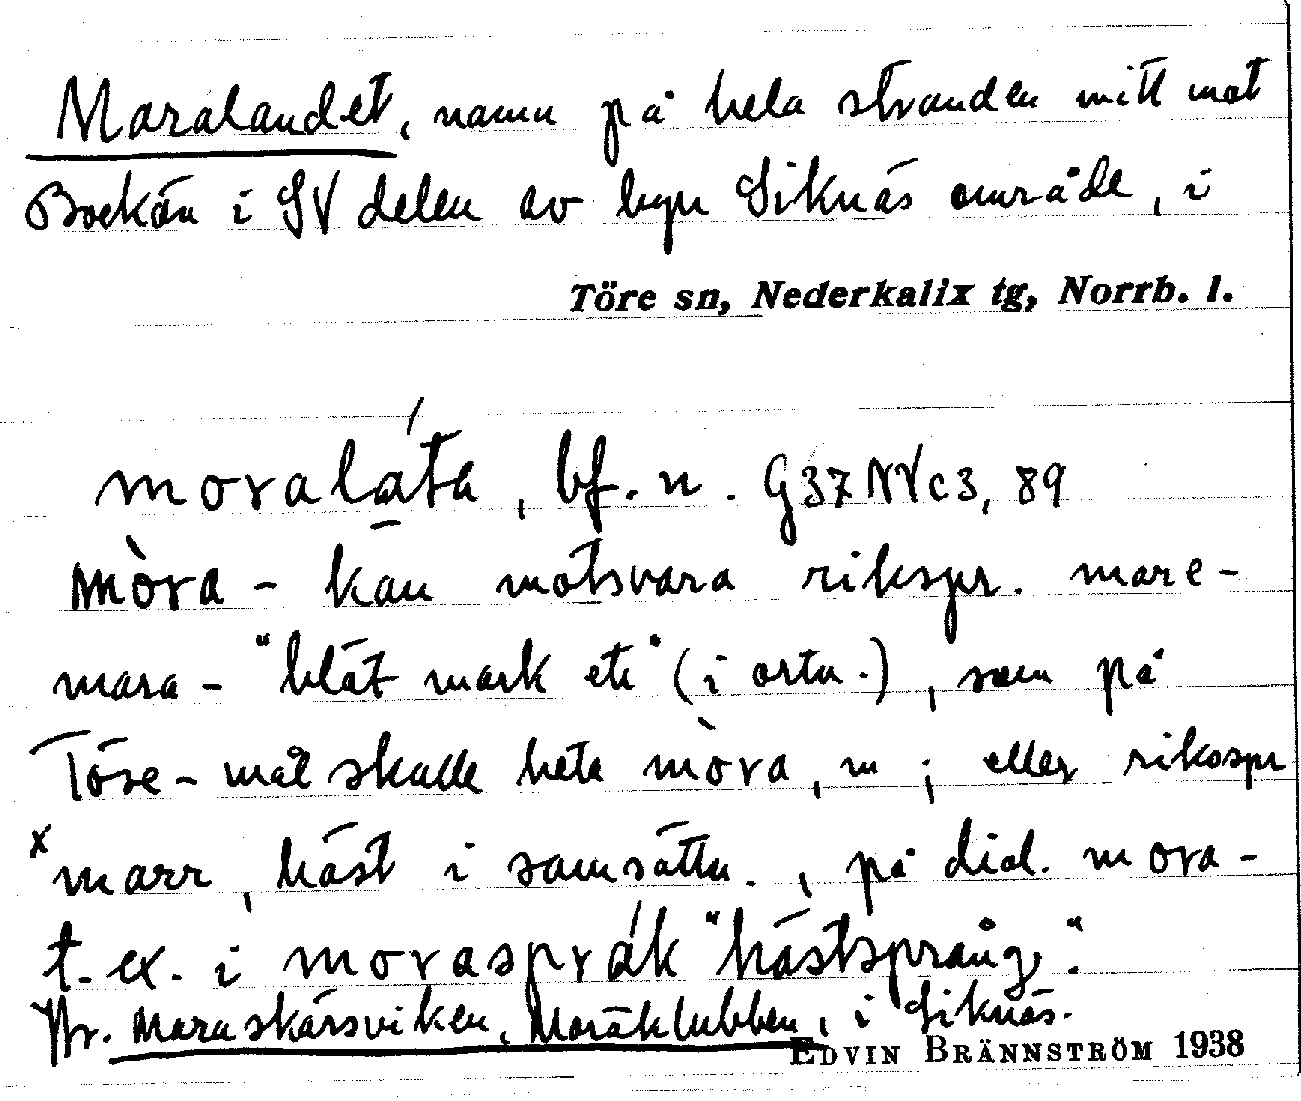 Maralandet, namn på hela stranden mitt mot
Bockön i SV delen av byn Siknäs område, i
Töre sn, Nederkalix tg, Norrb. l.
moraláta, bf. n. G37NVc3, 89
mòra- kan motsvara rikspr. mare-
mara- "blöt mark etc" (i ortn.), som på
Töre-mål skulle heta mòra, m; eller riksspr
x marr, häst i samsättn., på dial. mora-
t. ex. i moraspråk "hästsprång".
Hr. Maraskärsviken, Maraklubben, i Siknäs.
EDVIN BRÄNNSTRÖM 1938